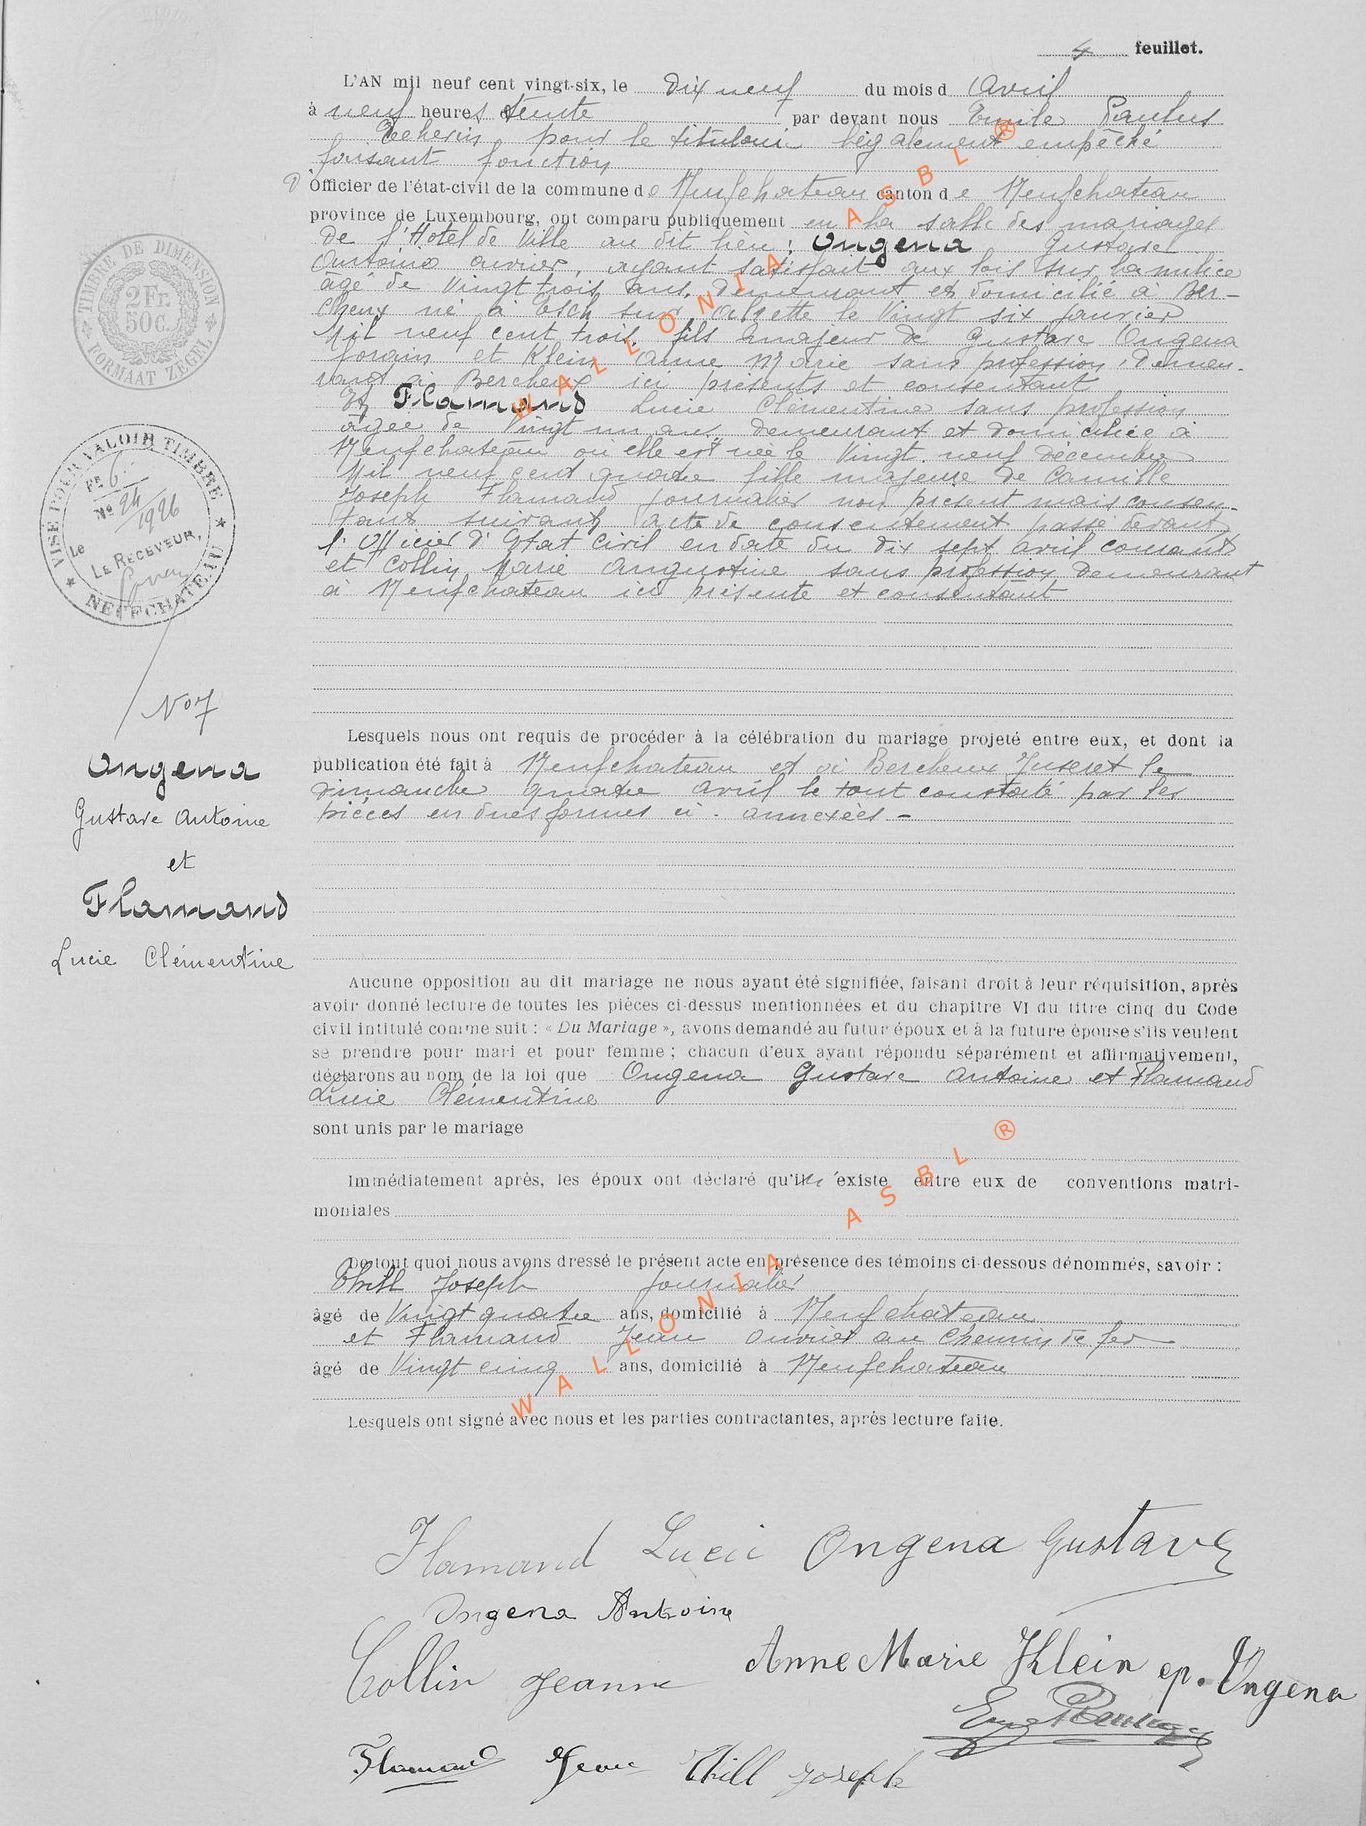 4 feuillet.
L'AN mil neuf cent vingt-six, le dix neuf du mois d Avril
à neuf heures trente par devant nous Emile Paulus
Echevin, pour le titulaire légalement empêché
faisant fonction
d'Officier de l'état-civil de la commune de Neufchateau canton de Neufchateau
province de Luxembourg, ont comparu publiquement en la salle des mariages
de l'Hotel de Ville au dit lieu : Ongena Gustave
Antoine ouvrier, ayant satisfait aux lois sur la milice
âgé de vingt trois ans, demeurant et domicilié à Ber-
cheux né à Esch sur Alzette le vingt six janvier
Mil neuf cent trois, fils majeur de Gustave Ongena
forain et Klein Anne Marie sans profession, demeu-
rant à Bercheux ici présents et consentant
Et Flamand Lucie Clémentine sans profession
âgée de vingt un ans demeurant et domiciliée à
Neufchateau où elle est née le vingt neuf décembre
Mil neuf cent quatre fille majeure de Camille
Joseph Flamand journalier non présent mais consen-
tant suivant acte de consentement passé devant
l'Officier d'Etat Civil en date du dix sept avril courant
et Collin Marie Augustine sans profession demeurant
à Neufchateau ici présente et consentant
TIMBRE DE DIMENSION
2 Fr. 50 c.
FORMAAT ZEGEL
VISÉ POUR VALOIR TIMBRE
Fr. 6
No 24
1926
Le
LE RECEVEUR,
NEUFCHATEAU
No 7
Ongena
Gustave Antoine
et
Flamand
Lucie Clémentine
Lesquels nous ont requis de procéder à la célébration du mariage projeté entre eux, et dont la
publication été fait à Neufchateau et à Bercheux Juseret le
dimanche quatre avril le tout constaté par les
pièces en dues formes ci-annexées. -
Aucune opposition au dit mariage ne nous ayant été signifiée, faisant droit à leur réquisition, après
avoir donné lecture de toutes les pièces ci-dessus mentionnées et du chapitre VI du titre cinq du Code
civil intitulé comme suit : « Du Mariage », avons demandé au futur époux et à la future épouse s'ils veulent
se prendre pour mari et pour femme ; chacun d'eux ayant répondu séparément et affirmativement,
déclarons au nom de la loi que Ongena Gustave Antoine et Flamand
Lucie Clémentine
sont unis par le mariage
Immédiatement après, les époux ont déclaré qu'il existe entre eux de conventions matri-
moniales
De tout quoi nous avons dressé le présent acte en présence des témoins ci-dessous dénommés, savoir :
Thill Joseph journalier
âgé de vingt quatre ans, domicilié à Neufchateau
et Flamand Jean ouvrier au chemin de fer
âgé de vingt cinq ans, domicilié à Neufchateau
Lesquels ont signé avec nous et les parties contractantes, après lecture faite.
Flamand Lucie Ongena Gustave
Ongena Antoine
Collin Jeanne Anne Marie Khlein ep. Ongena
Flamand Jean Thill Joseph
WALLONIA ASBL ®
WALLONIA ASBL ®